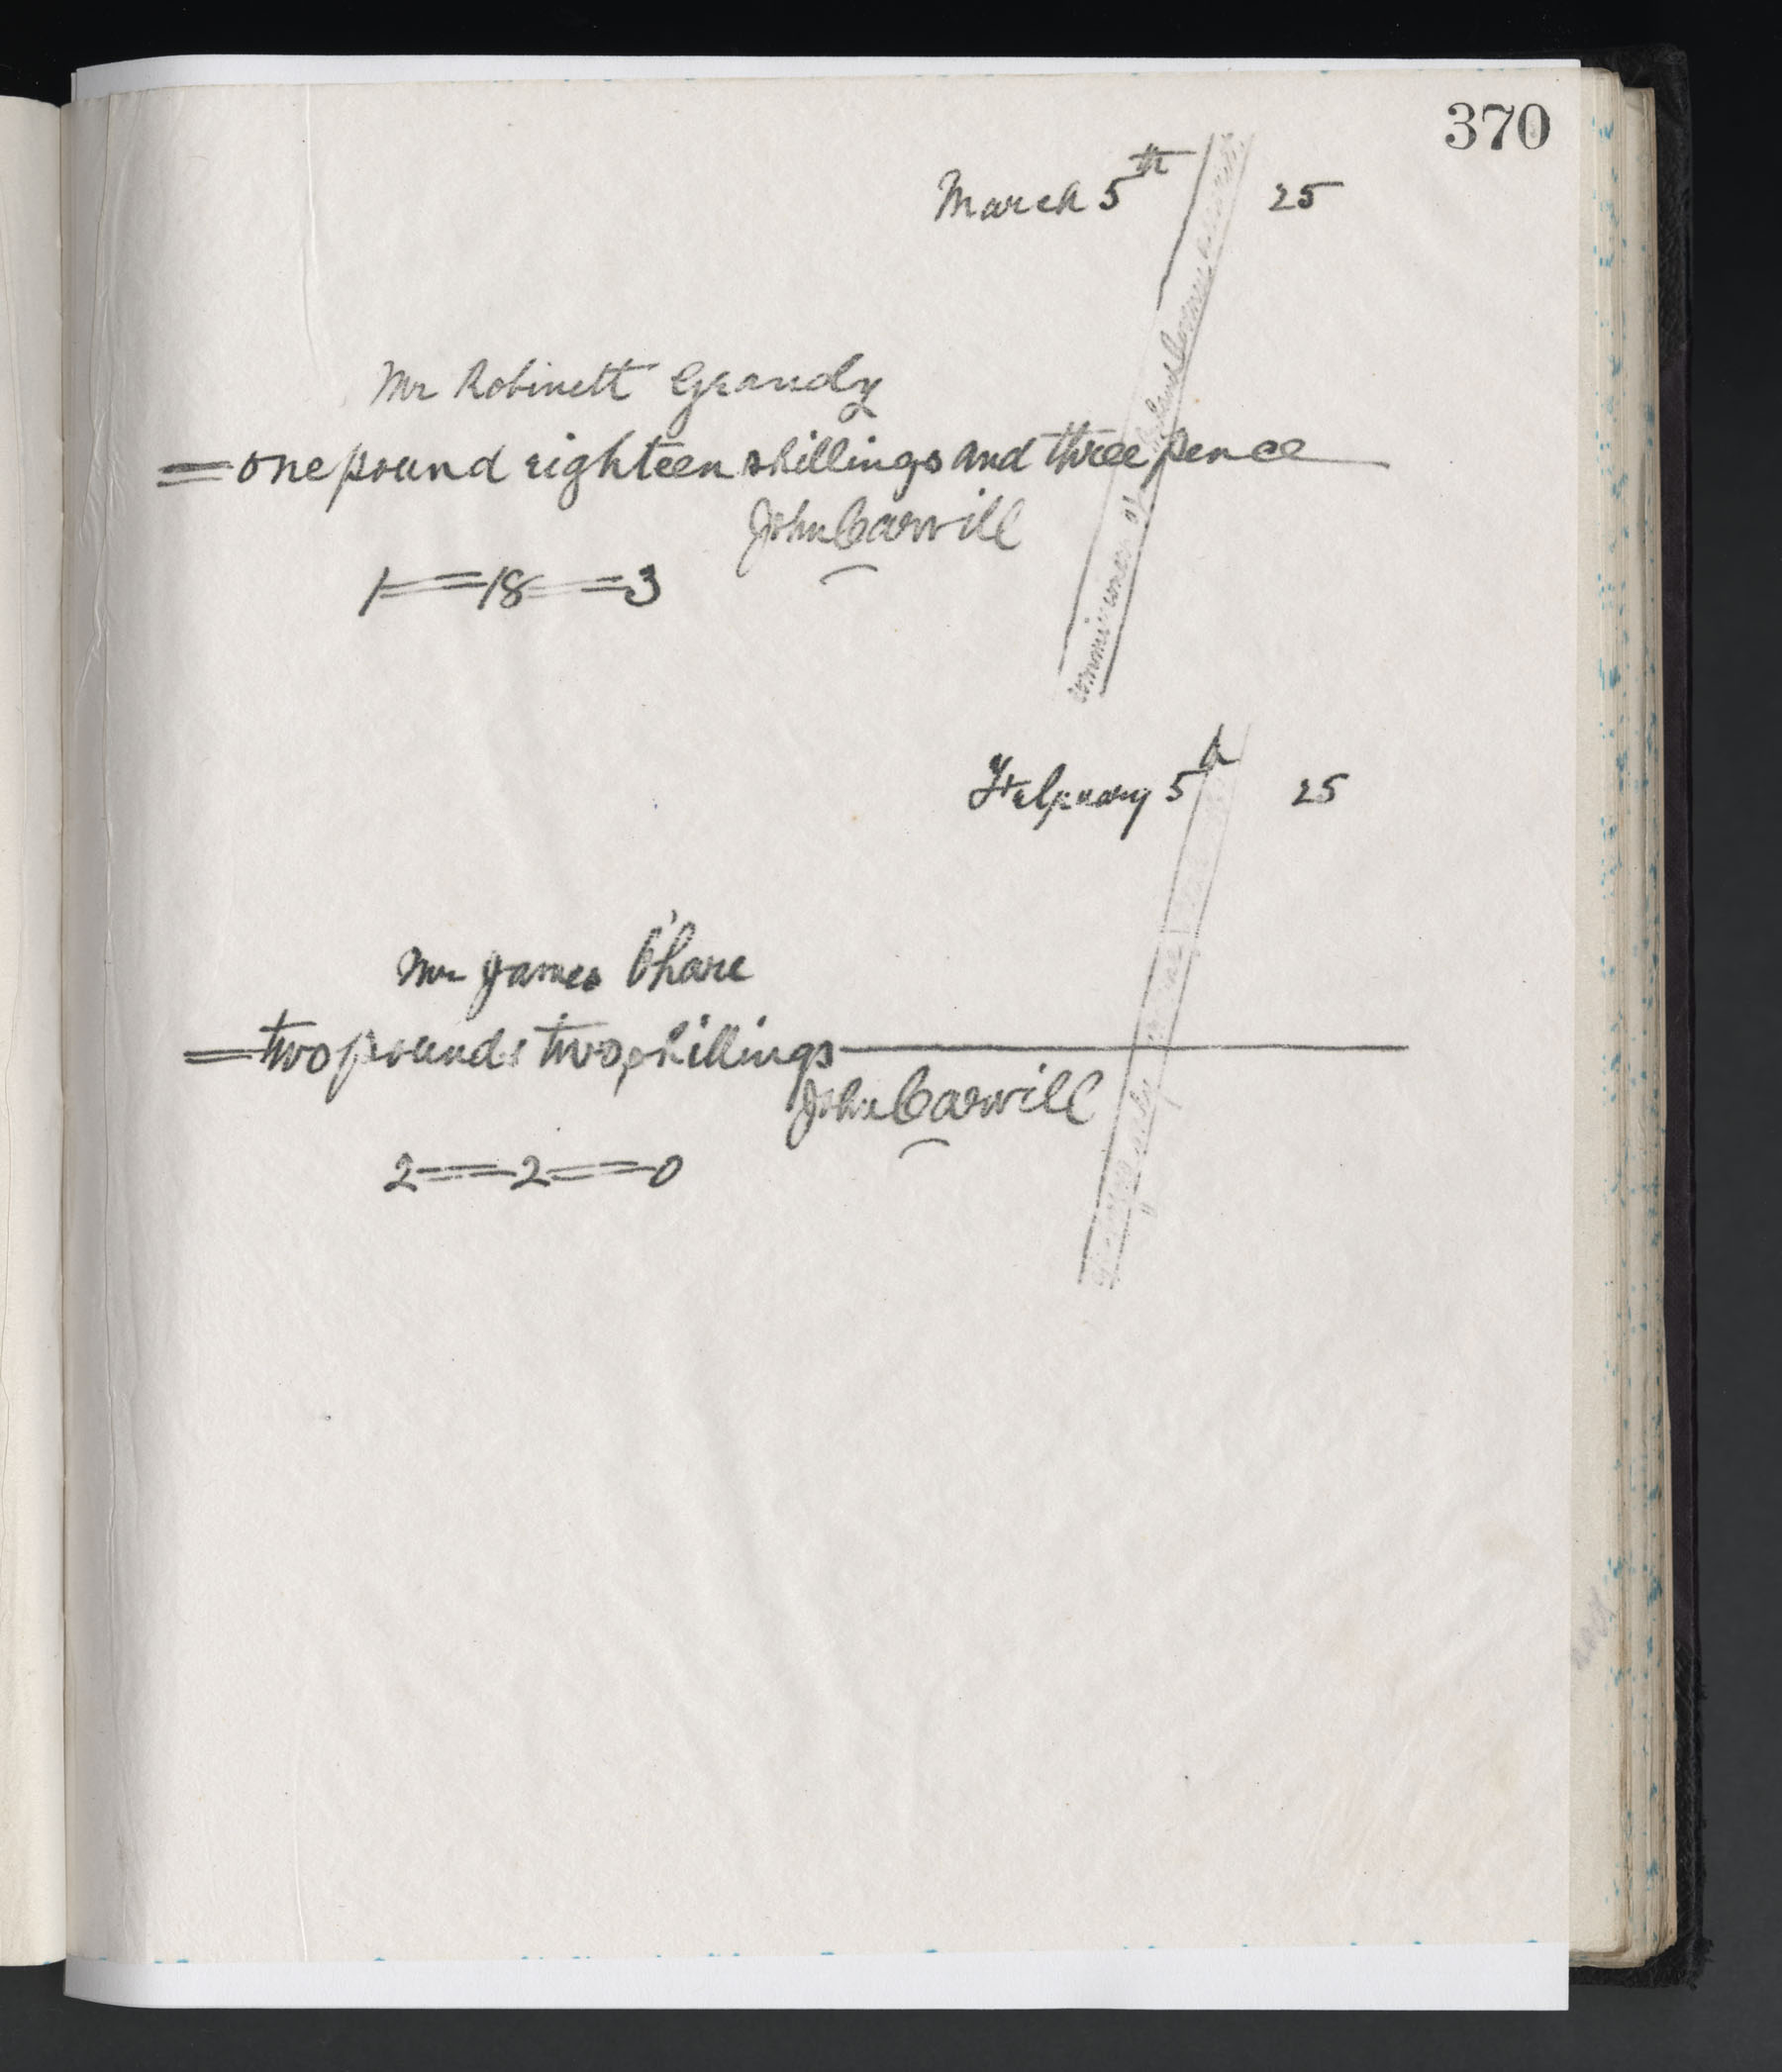 370
March 5th 25
Mr Robinett Grandy
= one pound eighteen shillings and three pence
John Carvill
1 == 18 == 3
February 5th 25
Mr James O'hare
= two pounds two shillings
John Carvill
2 == 2 == 0